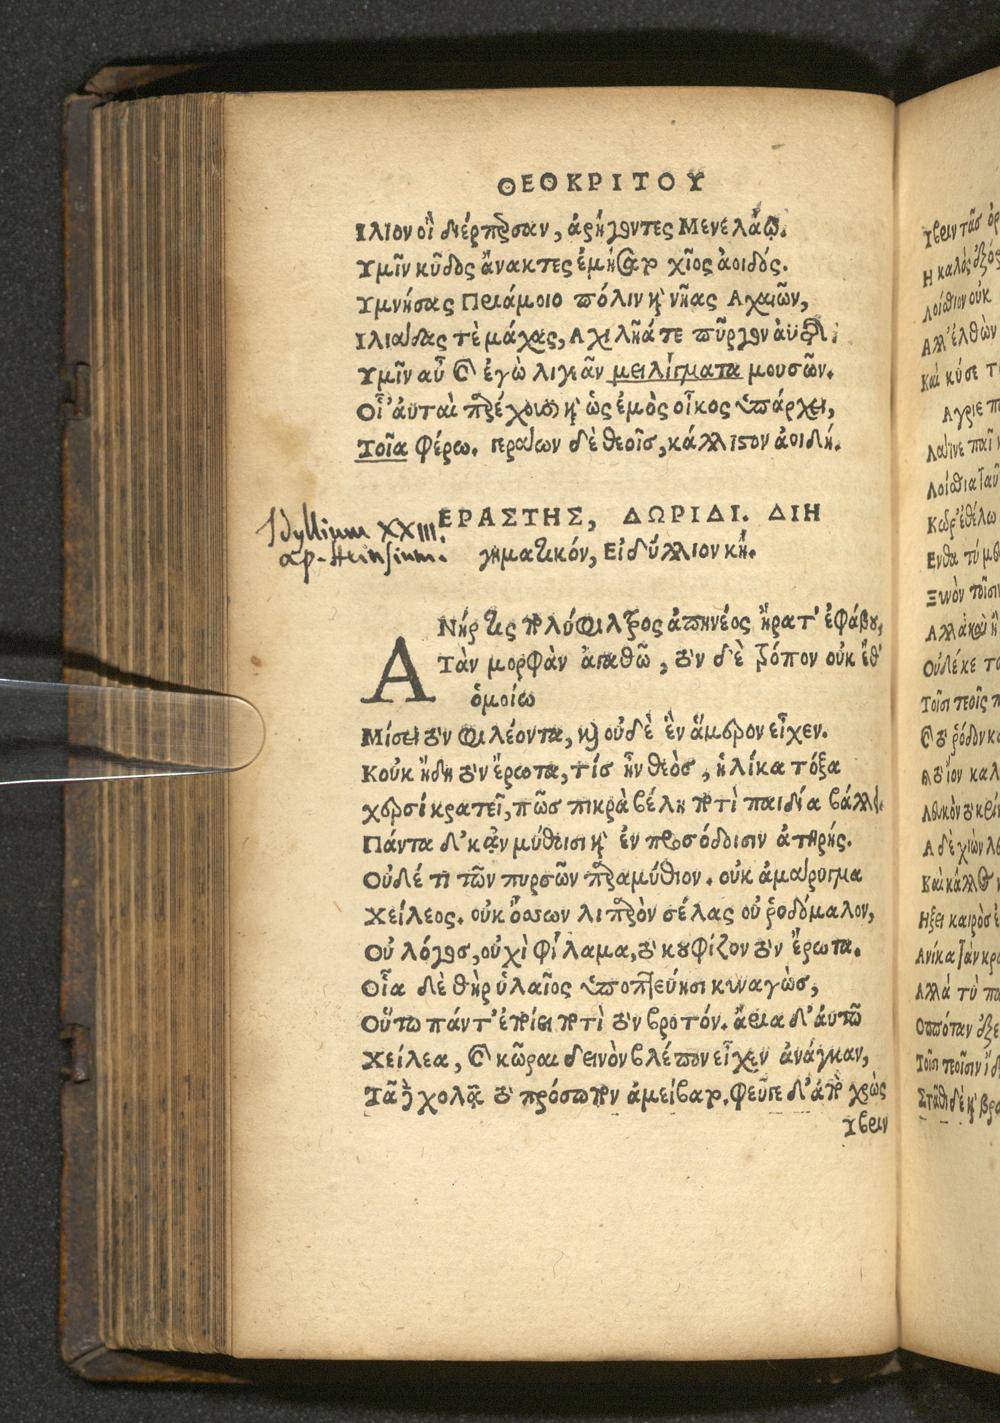 ΘΕΟΚΡΙΤΟΥ
Ιλιον οἳ διέπερσαν, ἀρήγοντες Μενελάῳ.
Υμῖν κῦδος ἄνακτες ἐμήσατο χῖος ἀοιδός.
Υμνήσας Πριάμοιο πόλιν καὶ νῆας Αχαιῶν,
Ιλιάδας τὲ μάχας, Αχιλῆά τε πῦργον ἀϋτῆς;
Υμῖν αὖ καὶ ἐγὼ λιγεᾶν μειλίγματα μουσῶν.
Οἷ' ἀυταὶ παρέχουσι καὶ ὡς ἐμὸς οἶκος ὑπάρχει,
Τοῖα φέρω. γεράων δὲ θεοῖσ, κάλλιστον ἀοιδή.
ΕΡΑΣΤΗΣ, ΔΩΡΙΔΙ. ΔΙΗ
Idyllium XXIII.
ap. Heinsium.
γηματικόν, Εἰδύλλιον κή.
ΑΝήρ τις πολύφιλτρος ἀπηνέος ἤρατ' ἐφάβου,
Τὰν μορφὰν ἀγαθῶ, τὸν δὲ τρόπον οὐκ ἔθ'
ὁμοίω
Μίσει τὸν φιλέοντα, καὶ οὐδὲ ἓν ἅμερον εἶχεν.
Κοὐκ ᾔδη τὸν ἔρωτα, τίσ ἦν θεὸσ, ἡλίκα τόξα
χερσί κρατεῖ, πῶσ πικρὰ βέλη ποτὶ παιδία βάλλει.
Πάντα δ' κἀν μύθοισι καὶ ἐν προσόδοισιν ἀτειρής.
Οὐδέ τι τῶν πυρσῶν παραμύθιον. οὐκ ἀμάρυγμα
Χείλεος. οὐκ ὄσσων λιπαρὸν σέλας οὐ ῥοδόμαλον,
Οὐ λόγοσ, οὐχὶ φίλαμα, τὸ κουφίζον τὸν ἔρωτα.
Οἷα δὲ θὴρ ὑλαῖος ὑποπτεύησι κυναγὼσ,
Οὕτω πάντ' ἐποίει ποτὶ τὸν βροτόν. ἄγρια δ' ἀυτῶ
Χείλεα, καὶ κῶραι δεινὸν βλέπον εἶχεν ἀνάγκαν,
Τᾶ δὲ χολᾷ τὸ πρόσωπον ἀμείβετο. φεῦγε δ' ἀπὸ χρὼς
Υβριν